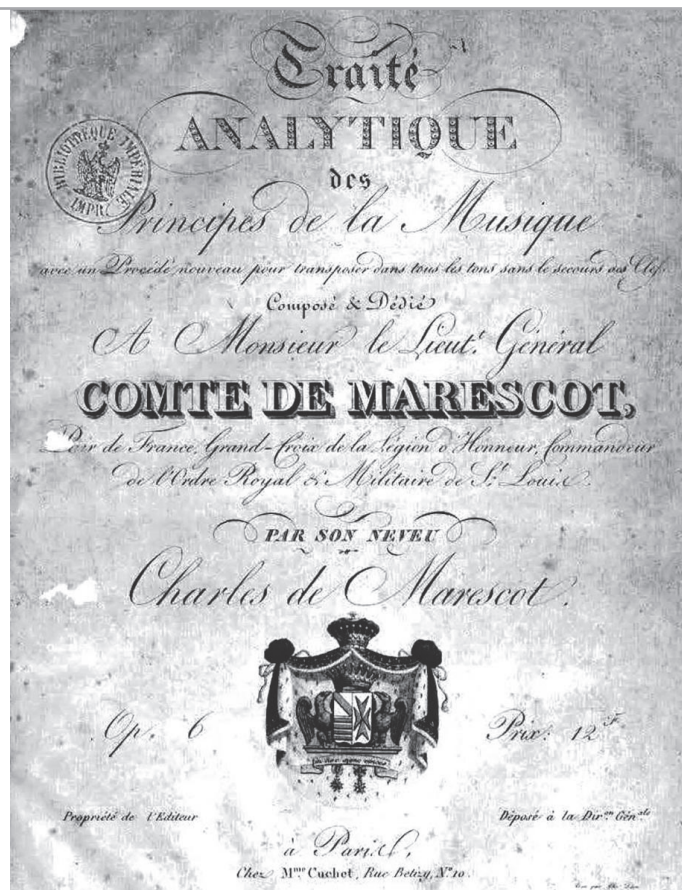 Traité
ANALYTIQUE
des
BIBLIOTHÈQUE IMPÉRIALE
IMPR.
Principes de la Musique
avec un Procédé nouveau pour transposer dans tous les tons sans le secours des Clefs
Composé & Dédié
A Monsieur le Lieut.t Général
COMTE DE MARESCOT,
Pair de France, Grand-Croix de la Légion d'Honneur, Commandeur
de l'Ordre Royal & Militaire de St. Louis.
PAR SON NEVEU
Charles de Marescot.
Op. 6
Prix: 12 f
Propriété de l'Editeur
Déposé à la Dir.on Gén.ale
à Paris,
Chez Mme Cuchet, Rue Betizy, N.o 10.